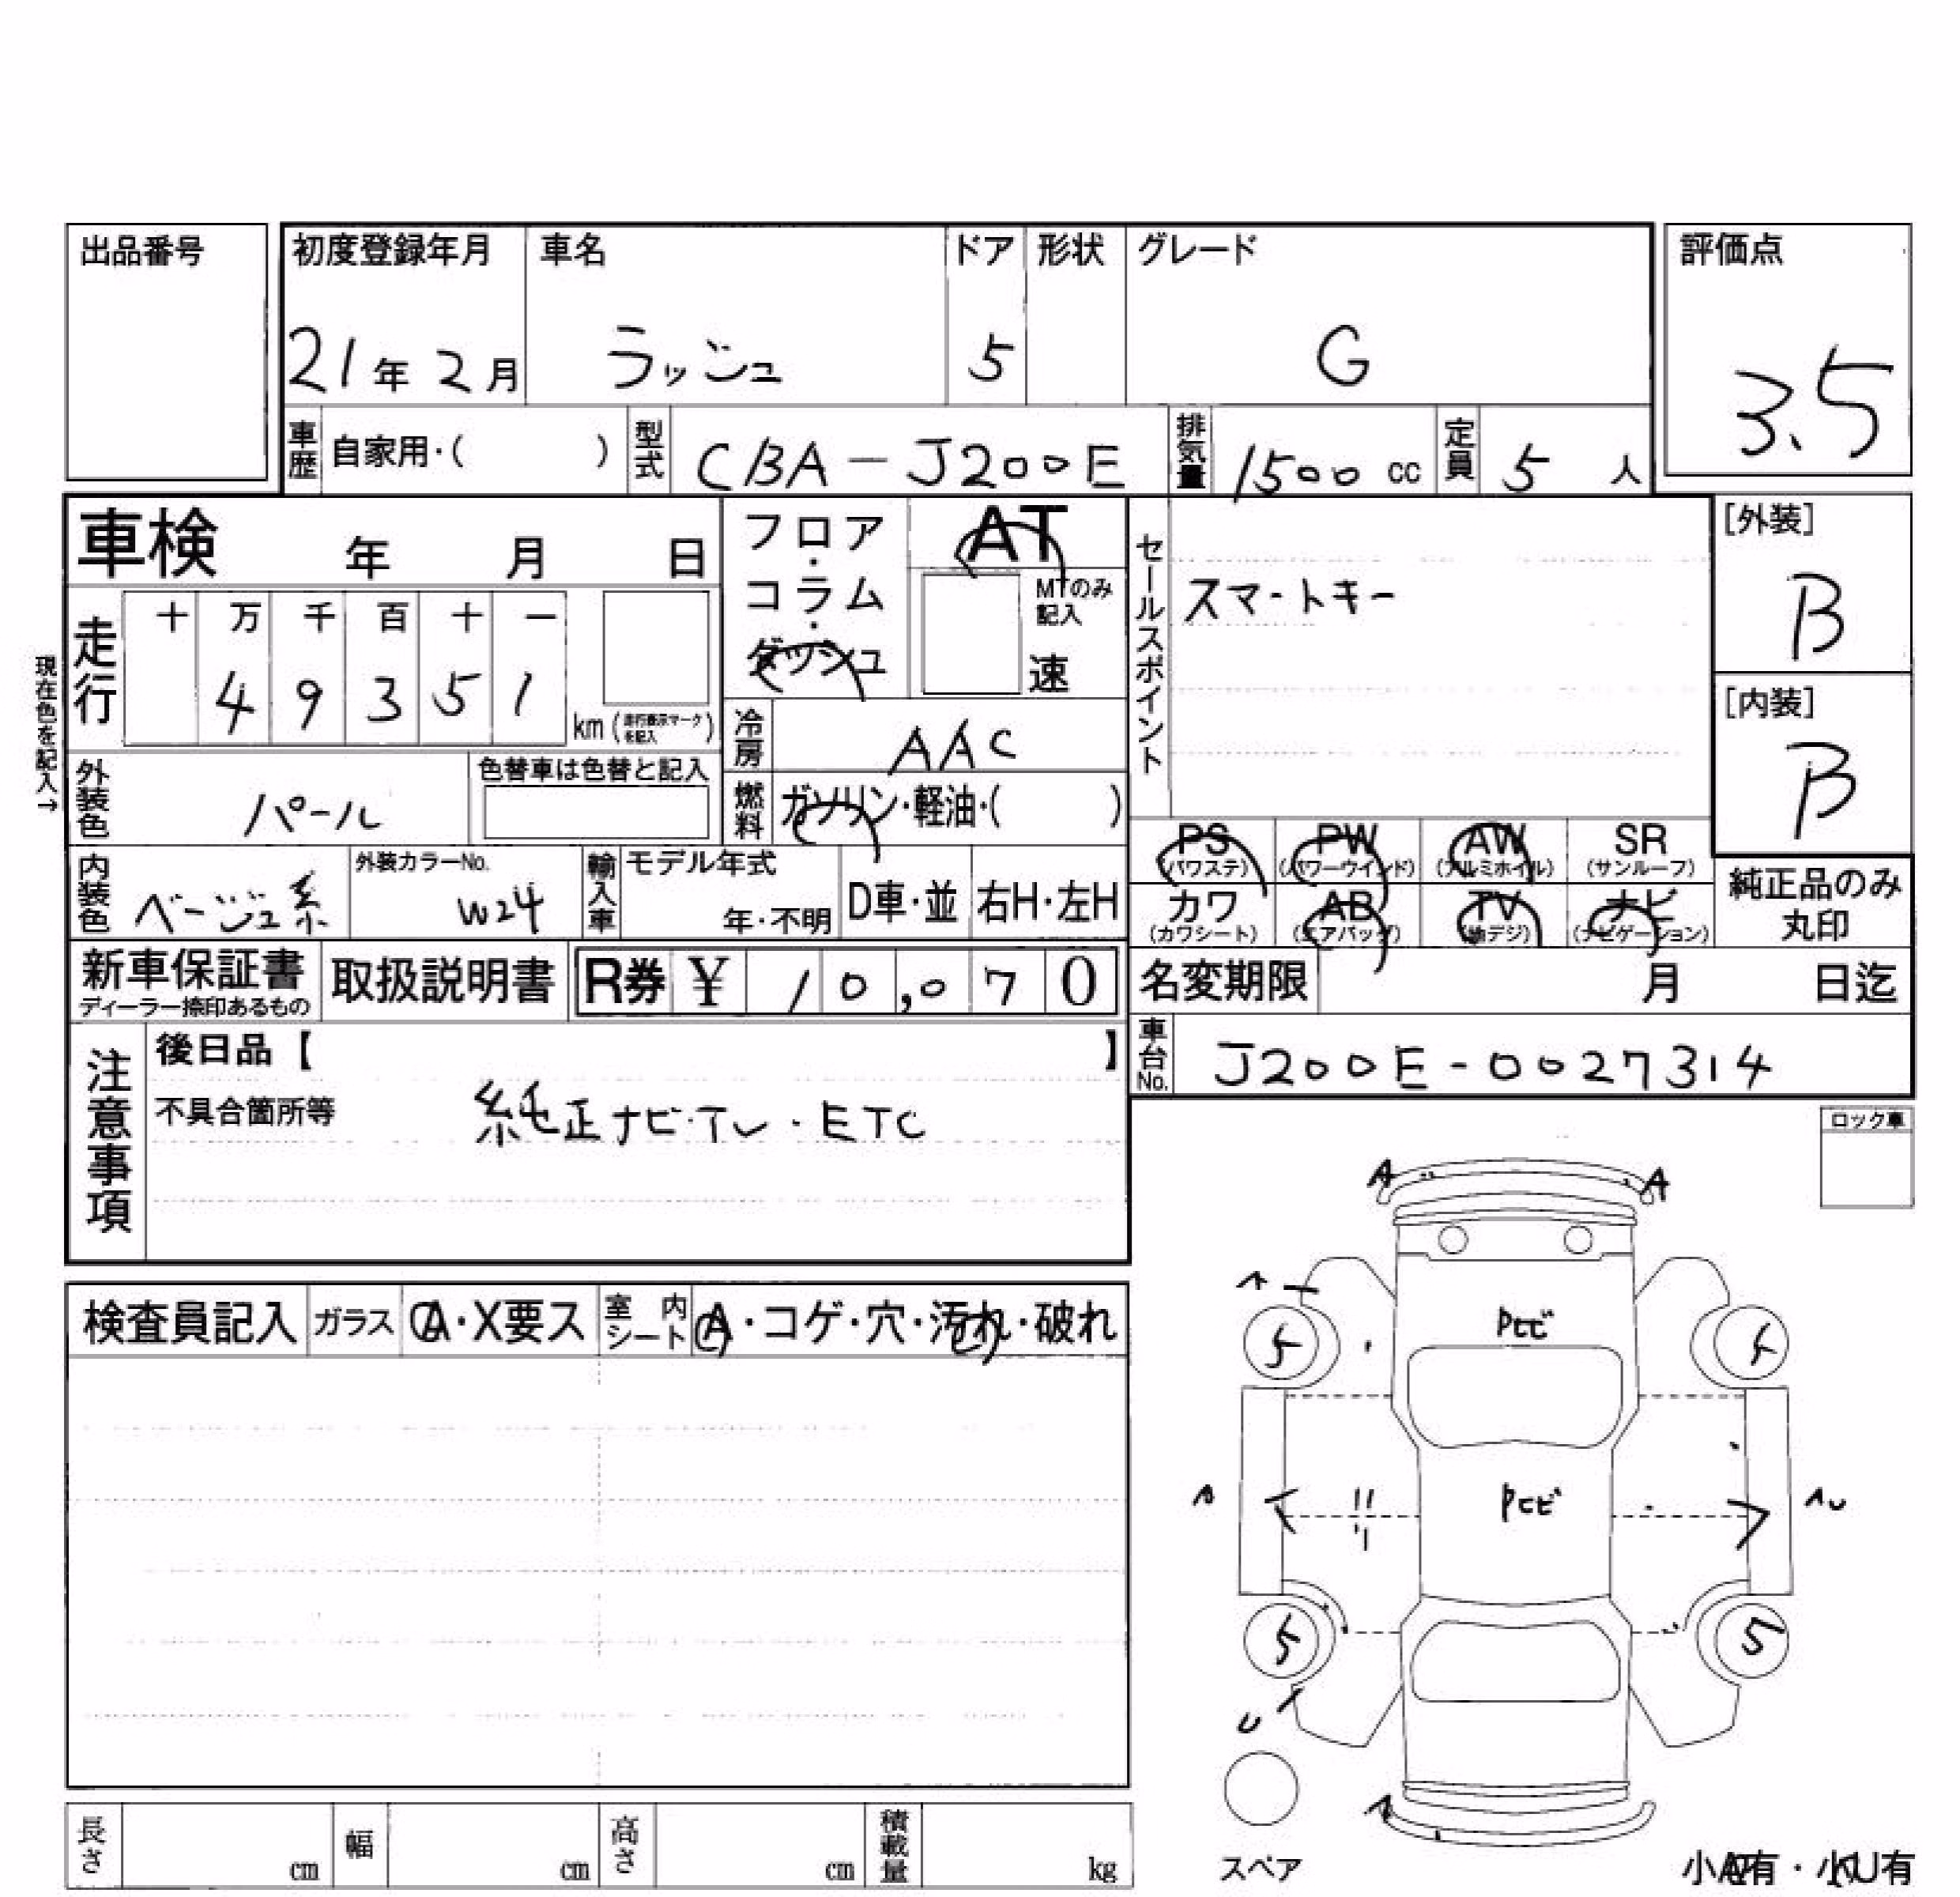 出品番号
初度登録年月 車名 ドア 形状 グレード 評価点
21年 2月 ラッシュ 5 G 3.5
車歴 自家用・( ) 型式 CBA-J200E 排気量 1500 cc 定員 5 人
車検 年 月 日
フロア・コラム・ダッシュ
AT
MTのみ記入
速
セールスポイント
スマートキー
[外装]
B
[内装]
B
現在色を記入→
走行 十 万 千 百 十 一
4 9 3 5 1 km (走行表示マークを記入)
冷房 AAC
外装色 パール 色替車は色替と記入
燃料 ガソリン・軽油・( )
PS (パワステ) PW (パワーウインド) AW (アルミホイル) SR (サンルーフ)
カワ (カワシート) AB (エアバッグ) TV (地デジ) ナビ (ナビゲーション)
純正品のみ丸印
内装色 ベージュ系 外装カラーNo. W24 輸入車 モデル年式 年・不明 D車・並 右H・左H
新車保証書 ディーラー捺印あるもの 取扱説明書 R券 ¥ 10,070
名変期限 月 日迄
車台No. J200E-0027314
注意事項
後日品【 】
不具合箇所等 純正ナビ・TV・ETC
ロック車
検査員記入 ガラス A・X要ス 室内シート A・コゲ・穴・汚れ・破れ
A A
A
Pとビ
5 5
Pとビ
A AU
5 5
U
A
スペア
小A有・小U有
長さ cm 幅 cm 高さ cm 積載量 kg